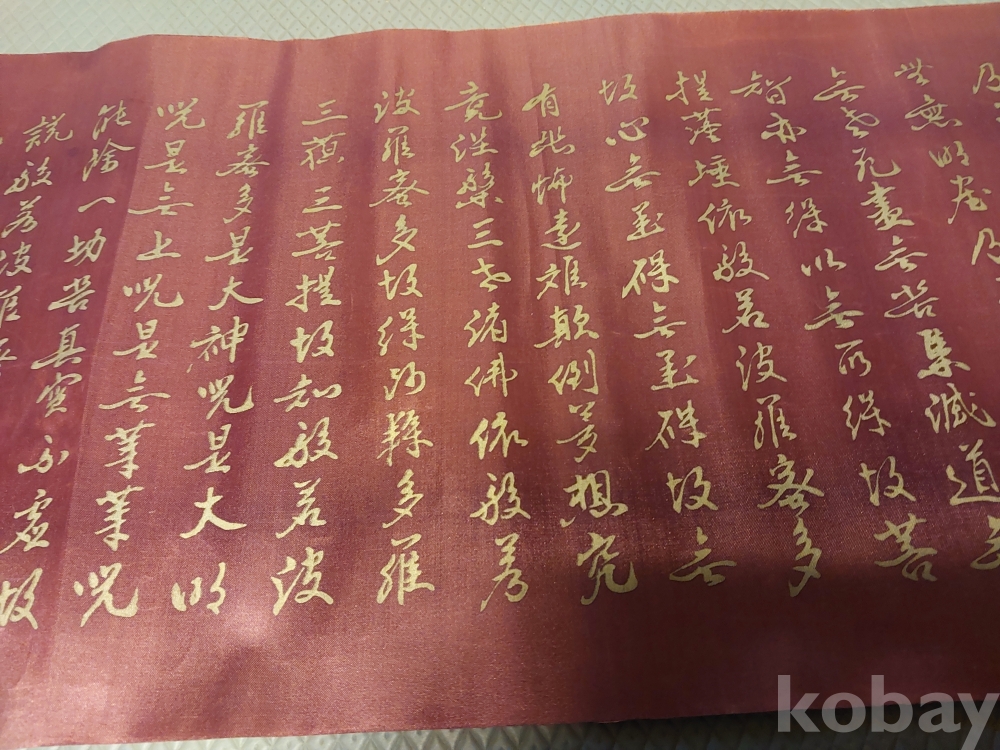 乃
無無明盡乃
無老死盡無苦集滅道無
智亦無得以無所得故菩
提薩埵依般若波羅蜜多
故心無罣礙無罣礙故無
有恐怖遠離顛倒夢想究
竟涅槃三世諸佛依般若
波羅蜜多故得阿耨多羅
三藐三菩提故知般若波
羅蜜多是大神呪是大明
呪是無上呪是無等等呪
能除一切苦真實不虛故
說般若波羅
kobay